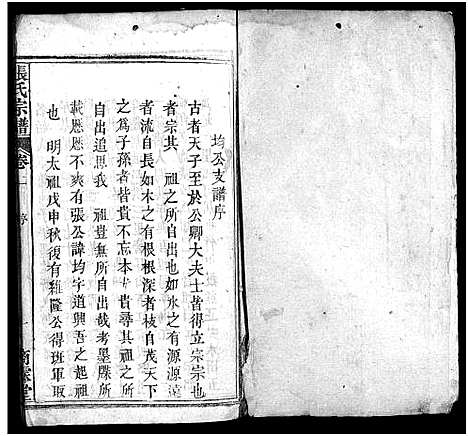 均公支譜序
古者天子至於公卿大夫士皆得立宗宗也
者宗其　祖之所自出也如水之有源源遠
者流自長如木之有根根深者枝自茂天下
之為子孫者皆貴不忘本＜貴尋其祖之所
自出追思我　祖豈無所自出哉考墨牒所
載悉悉不爽有張公諱均字道興吾之起祖
也　明太祖戊申秋復有維隆公得班軍取
張氏宗譜
卷一
序